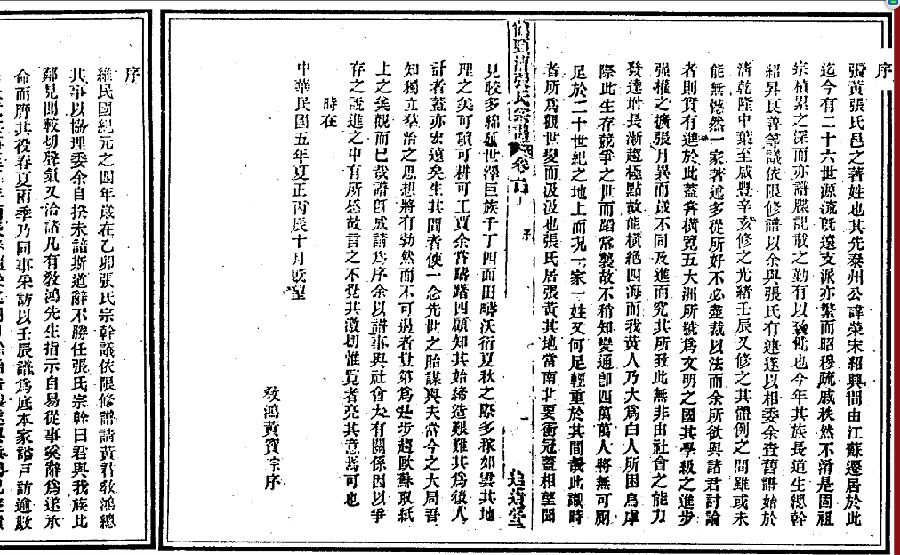 序
張黃張氏邑之著姓也其先泰州公諱榮宋紹興間由江蘇遷居於此
迄今有二十六世源流旣遠支派亦繁而昭穆疏戚秩然不淆是固祖
宗積累之深而亦譜牒記載之勤有以致也今年其族長道生總幹
紹昇民善等議依限修譜以余與張氏有連遂以相委余查舊譜始於
淸乾隆中葉至咸豐辛亥修之光緒壬辰又修之其體例之間雖或未
能無憾然一家著述多從所好不必盡裁以法而余所欲與諸君討論
者則貫有進於此蓋嘗橫覽五大洲所號爲文明之國其學級之進步
强權之擴張月異而歲不同及進而究其所致此無非由社會之能力
發達增長漸趨極點故能橫絕四海而我黃人乃大爲白人所困烏虖
際此生存競爭之世而蹈常襲故不稍知變通卽四萬萬人將無可廁
足於二十世紀之地上而況一家一姓又何足輕重於其間哉此識時
者所爲觀世變而汲汲也張氏居張黃其地當南北要衝冠蓋相望聞
見較多綿延世澤巨族千丁四面田疇沃衍夏秋之際多稼如雲其地
理之美可讀可耕可工賈余嘗躊躇四顧知其始締造艱難其爲後人
計者蓋亦宏遠矣生其間者使一念先世之貽謀與夫當今之大局吾
知獨立羣治之思想將有勃然而不可遏者豈第爲是步趨歐蘇取紙
上之美觀而已哉譜旣成請爲序余以譜事與社會大有關係因以爭
存之說進之中有所感故言之不覺其激切惟覽者亮其意焉可也
時在
中華民國五年夏正丙辰十月旣望
敎鴻黃賀宗序
張氏宗譜 卷
序
追遠堂
序
維民國紀元之四年歲在乙卯張氏宗幹議依限修譜請黃君敎鴻總
其事以協理委余自揆未諳斯道辭不勝任張氏宗幹曰君與我族比
鄰見聞較切聲氣又洽諸凡有敎鴻先生指示自易從事奚辭爲遂承
命而膺其役春夏兩季乃同事採訪以壬辰譜爲底本家諮戶訪逾歲